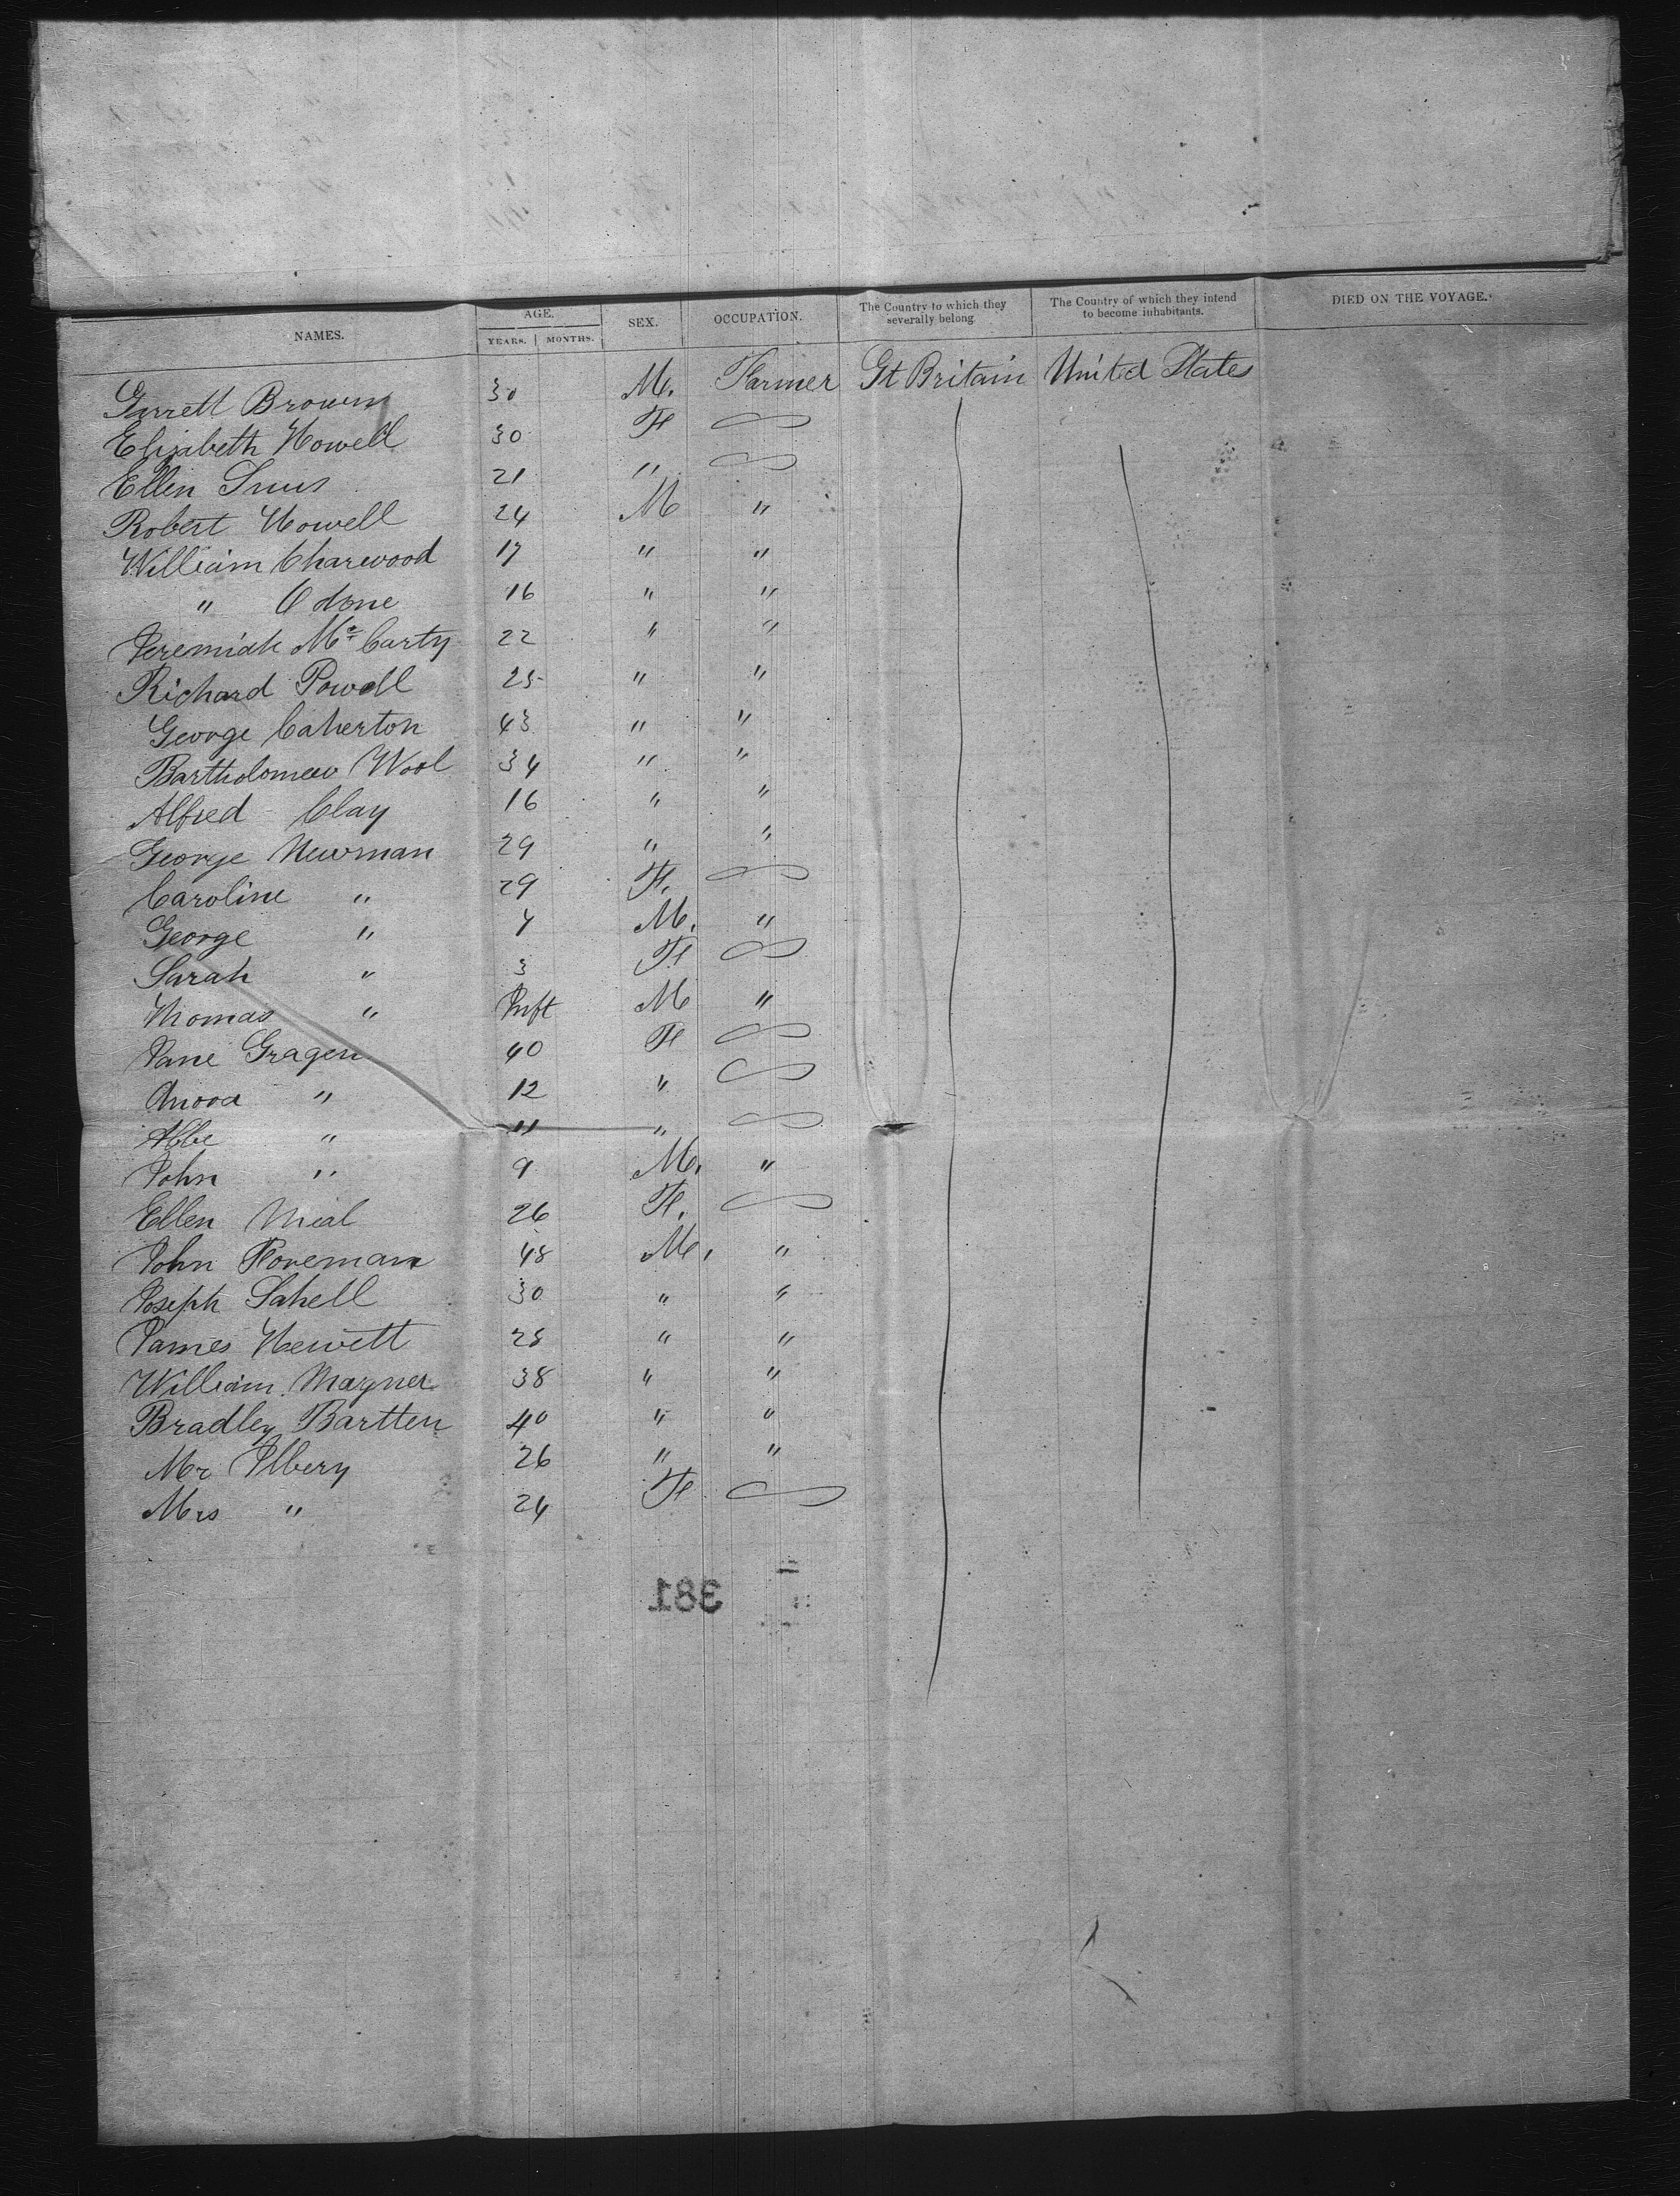 NAMES. AGE. SEX. OCCUPATION. The Country to which they severally belong. The Country of which they intend to become inhabitants. DIED ON THE VOYAGE.
YEARS. MONTHS.
Garrett Brown 30 M. Farmer Gt Britain United States
Elizabeth Howell 30 F
Ellen 21 "
Robert Howell 24 M "
William Charwood 17 " "
" Odone 16 " "
Jeremiah Mc Carty 22 " "
Richard Powell 25 " "
George Caherton 43 " "
Bartholomew Wool 34 " "
Alfred Clay 16 " "
George Newman 29 " "
Caroline " 29 F.
George " M. "
Sarah " 3 F
Thomas " Inft M "
Jane Gragen 40 F
" 12 "
Abbe " 11 "
John " 9 M. "
Ellen Nieal 26 F.
John Foreman 48 M. "
Joseph Sahell 30 " "
James Hewett 28 " "
William Magner 38 " "
Bradley Bartten 40 " "
Mr Ilbery 26 " "
Mrs " 24 F
381